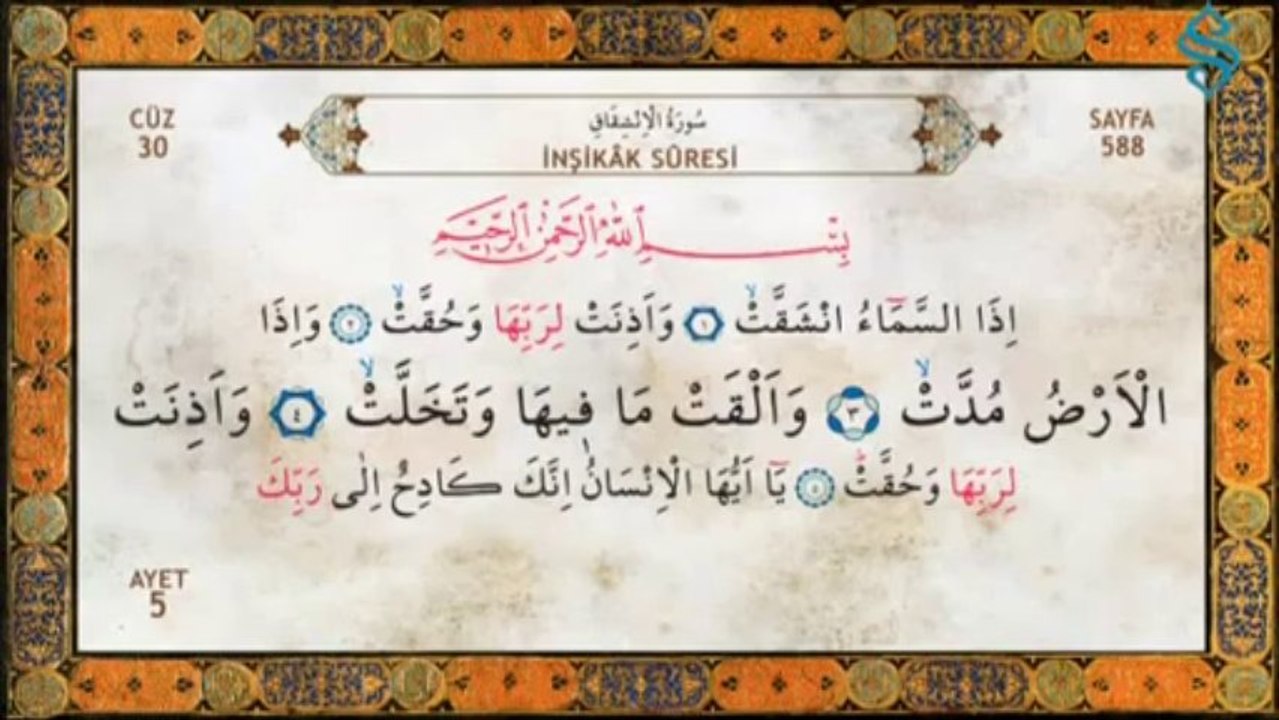 CÜZ
30
سُورَةُ الْاِنْشِقَاقِ
İNŞİKÂK SÛRESİ
SAYFA
588
بِسْمِ اللّٰهِ الرَّحْمٰنِ الرَّحِيمِ
اِذَا السَّمَٓاءُ انْشَقَّتْۙ ١ وَاَذِنَتْ لِرَبِّهَا وَحُقَّتْۙ ٢ وَاِذَا
الْاَرْضُ مُدَّتْۙ ٣ وَاَلْقَتْ مَا فٖيهَا وَتَخَلَّتْۙ ٤ وَاَذِنَتْ
لِرَبِّهَا وَحُقَّتْؕ ٥ يَٓا اَيُّهَا الْاِنْسَانُ اِنَّكَ كَادِحٌ اِلٰى رَبِّكَ
AYET
5